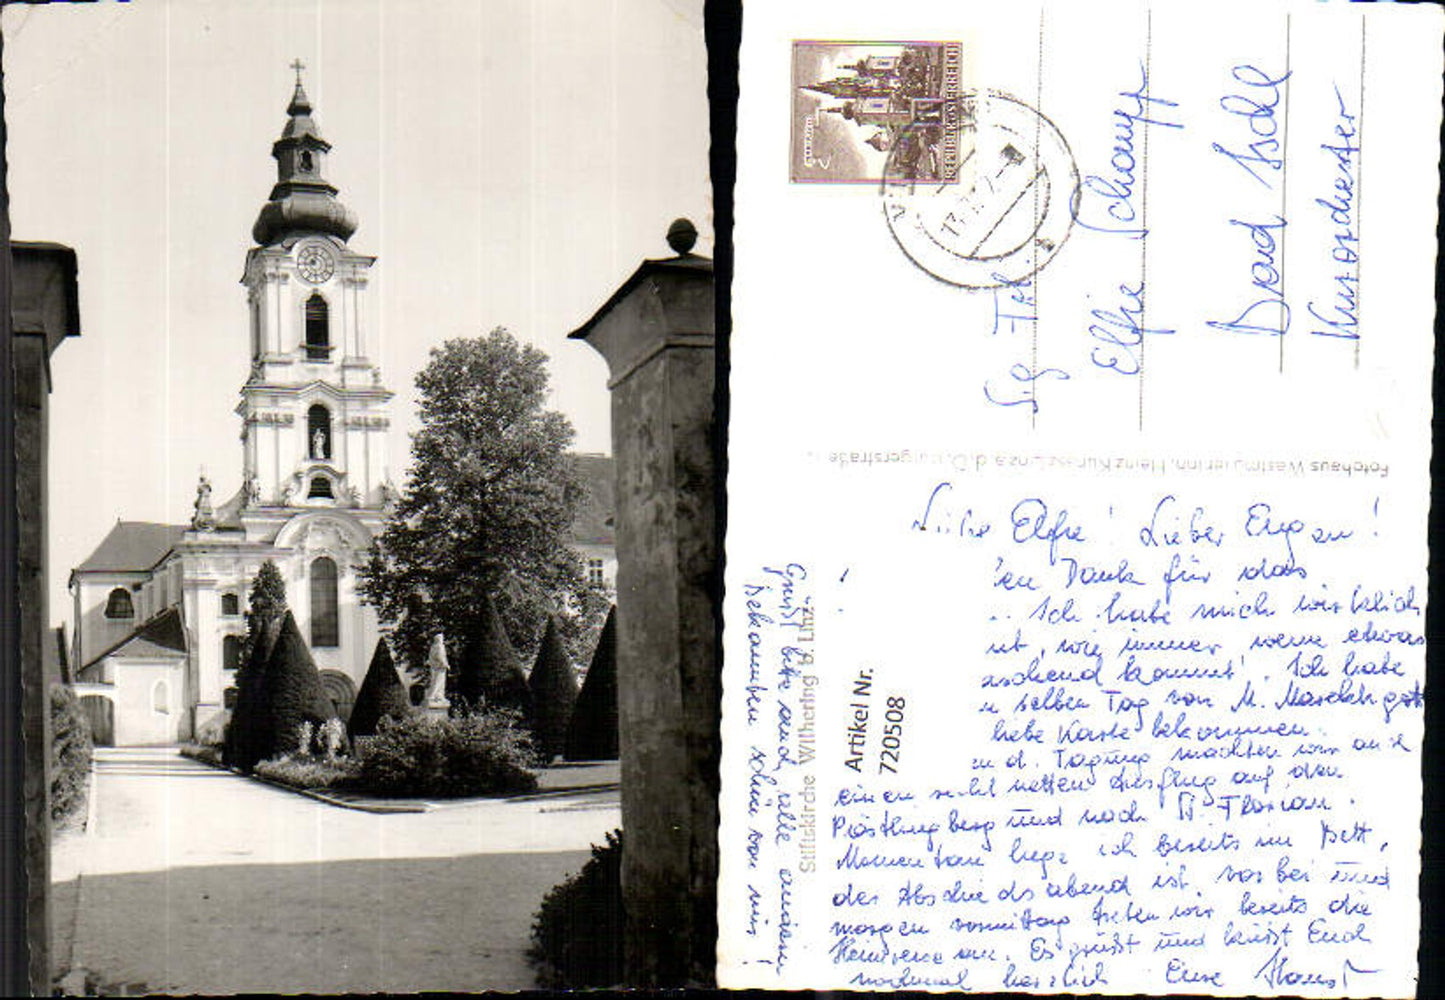 REPUBLIK ÖSTERREICH
S.g. Frl.
Elfie Schaupp
Bad Ischl
Kurorchester
Fotohaus Westmüller Inh. Heinz Kunz Linz a. d. D.
Liebe Elfie! Lieber Eugen!
Dank für das
Ich habe mich wirklich
wie immer, wenn etwas
kommt! Ich habe
selben Tag von M.
liebe Karte bekommen.
n d. Tagung machten wir auch
einen sehr netten Ausflug auf den
Pöstlingberg und nach St. Florian.
Momentan liege ich bereits im Bett,
der Abschiedsabend ist vorbei und
morgen vormittag treten wir bereits die
Heimreise an. Es grüßt und küsst Euch
nochmal herzlich Eure
Grüßt bitte auch alle anderen
Bekannten schön von mir!
Stiftskirche Wilhering b. Linz
Artikel Nr.
720508